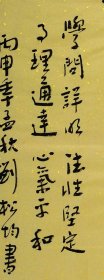 學問詳明德性堅定
事理通達心氣平和
丙申季孟秋劉松均書